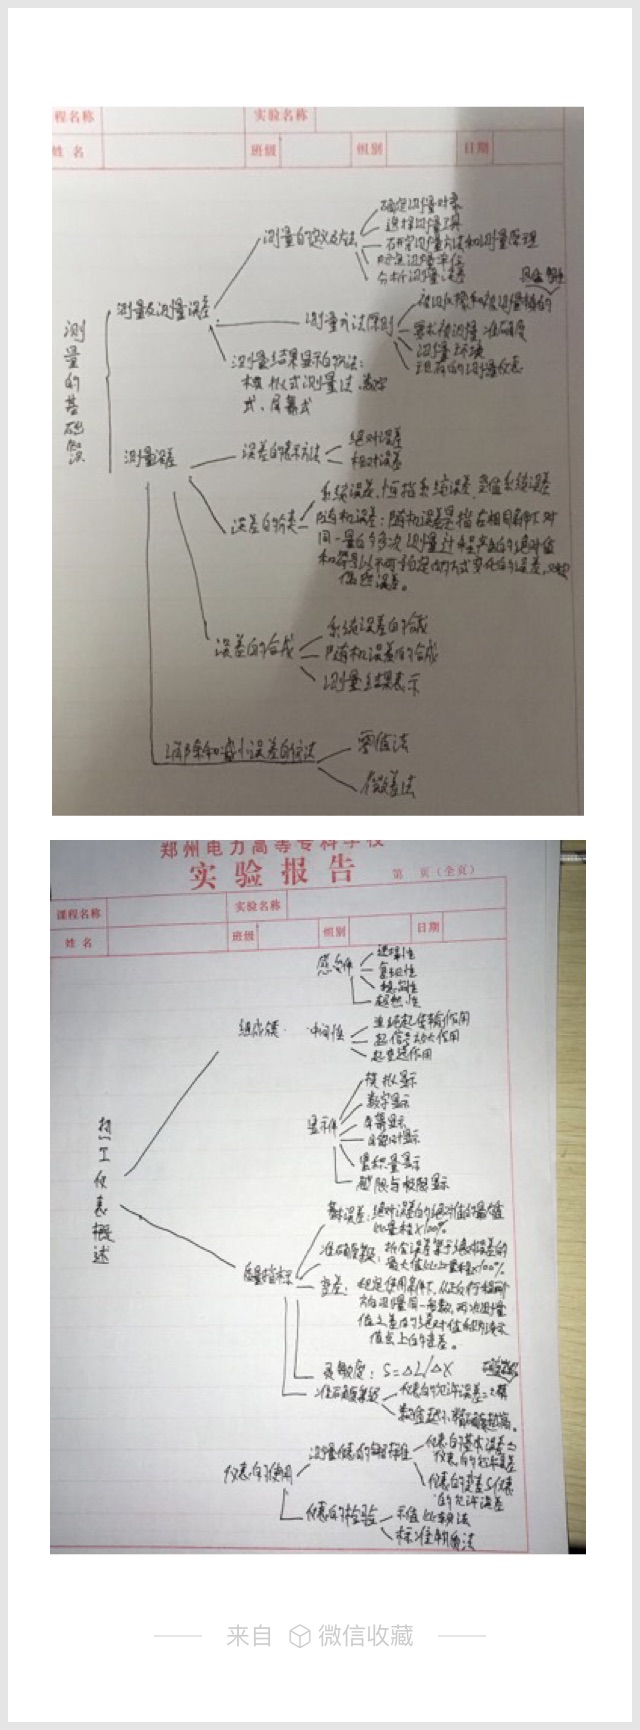 程名称
实验名称
姓 名
班级
组别
日期
测量的基础知识
测量及测量误差
测量的定义及方法
确定测量对象
选择测量工具
研究测量方法和测量原理
测量单位
分析测量误差
测量方法原则
要求的测量准确度
测量环境
现有的测量仪表
测量结果显示的方法:
模拟式测量法、数字
式、屏幕式
测量误差
误差的表示方法
绝对误差
相对误差
误差的分类
系统误差、恒指系统误差、变值系统误差
随机误差:随机误差是指在相同条件下对
同一量的多次测量过程中产生的绝对值
和符号以不可预定的方式变化的误差,又称
偶然误差。
误差的合成
系统误差的合成
随机误差的合成
测量结果表示
消除和减小误差的方法
零值法
微差法
郑州电力高等专科学校
实验报告
第 页(全页)
课程名称
实验名称
姓 名
班级
组别
日期
热工仪表概述
组成环
感受件
选择性
复现性
超然性
中间件
起传输作用
起信号放大作用
起变送作用
显示件
模拟显示
数字显示
屏幕显示
累积量显示
越限与极限显示
质量指标
基本误差:绝对误差的绝对值的最大值
比量程×100%
准确度等级:
最大值比上量程×100%
变差:规定使用条件下,从正行程两个
方向测量同一参数,两次测量
值之差的绝对值
值点上的变差。
灵敏度:S=△L/△X
准确度等级
仪表的允许误差
数值越小精确度越高。
仪表的使用
测量仪表的
仪表的基本误差≤
仪表的允许误差
仪表的变差≤仪表
的允许误差
仪表的检验
示值比较法
标准物质法
来自 微信收藏